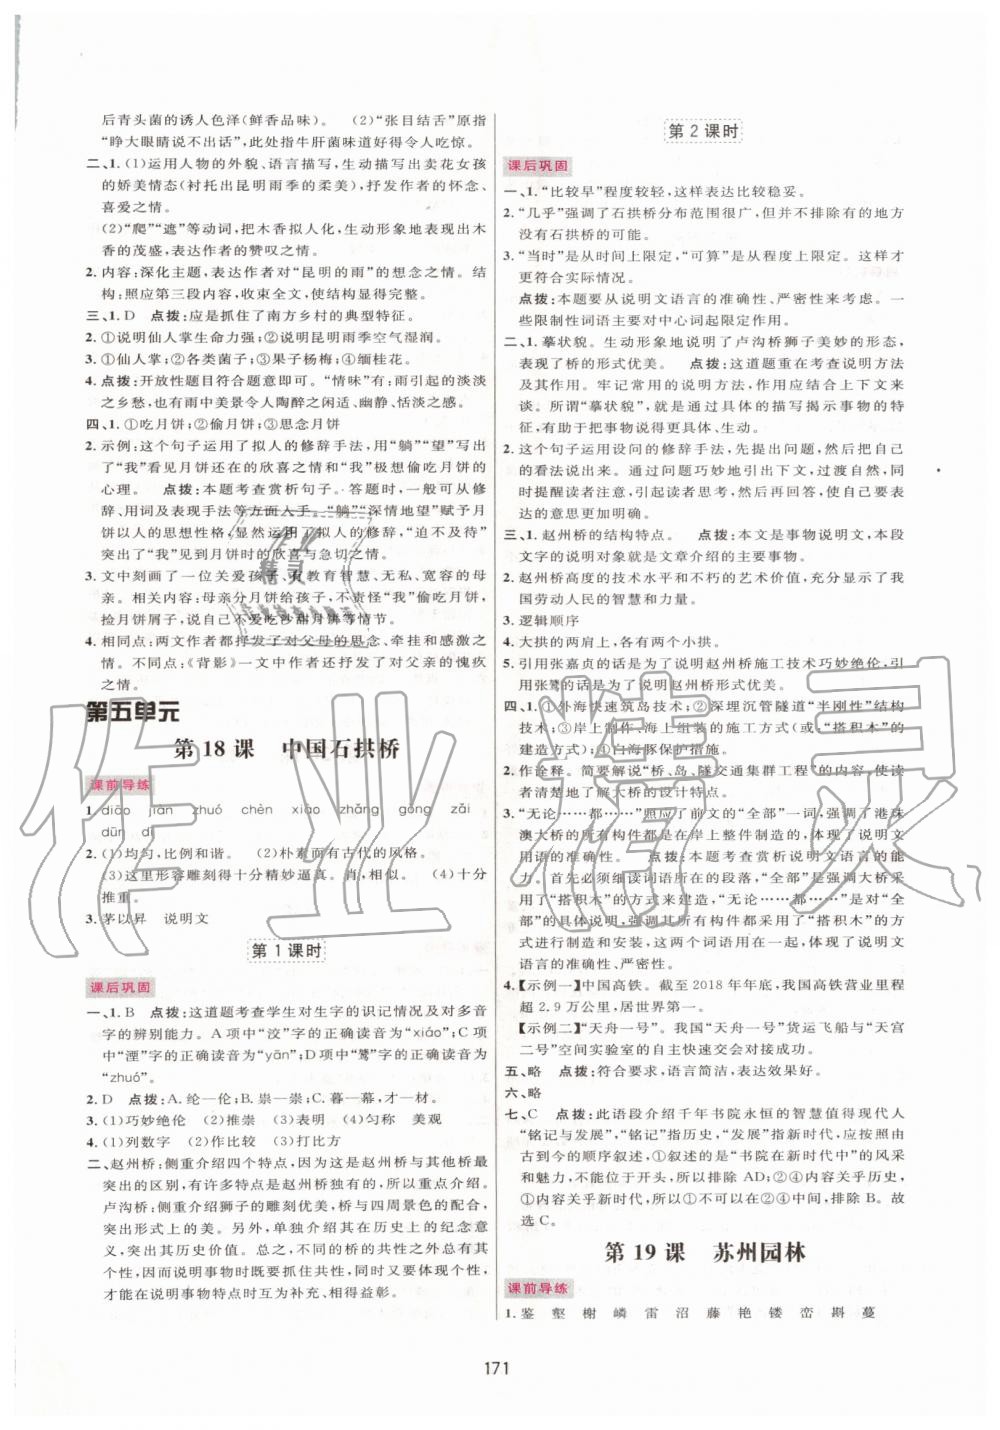 后青头菌的诱人色泽(鲜香品味)。　(2)“张目结舌”原指
“睁大眼睛说不出话”,此处指牛肝菌味道好得令人吃惊。
二、1.(1)运用人物的外貌、语言描写,生动描写出卖花女孩
的娇美情态(衬托出昆明雨季的柔美),抒发作者的怀念、
喜爱之情。
(2)“爬”“遮”等动词,把木香拟人化,生动形象地表现出木
香的茂盛,表达作者的赞叹之情。
2.内容:深化主题,表达作者对“昆明的雨”的想念之情。结
构:照应第三段内容,收束全文,使结构显得完整。
三、1.D　点拨:应是抓住了南方乡村的典型特征。
2.①说明仙人掌生命力强;②说明昆明雨季空气湿润。
3.①仙人掌;②各类菌子;③果子杨梅;④缅桂花。
4.点拨:开放性题目符合题意即可。“情味”有:雨引起的淡淡
之乡愁,也有雨中美景令人陶醉之闲适、幽静、恬淡之感。
四、1.①吃月饼;②偷月饼;③思念月饼
2.示例:这个句子运用了拟人的修辞手法,用“躺”“望”写出
了“我”看见月饼存在的欣喜之情和“我”极想偷吃月饼的
心理。　点拨:本题考查赏析句子。答题时,一般可从修
辞、用词及表达技巧等方面入手。“躺”“深情地望”赋予月
饼以人的思想性格,显然运用了拟人的修辞,“迫不及待”
突出了“我”见到月饼时的欣喜与急切之情。
3.文中刻画了一位关爱孩子、有教育智慧、无私、宽容的母
亲。内容:母亲分月饼给孩子,不责怪“我”偷吃月饼,
捡月饼屑,谎说自己爱吃沙甜月饼等情节。
4.相同点:两文作者都抒发了对父母的思念、牵挂和感激之
情。不同点:《背影》一文中作者还抒发了对父亲的愧疚
之情。
第五单元
第 18 课　中国石拱桥
课前导练
1.diāo　jiàn　zhuó　chèn　xiào　zhǎng　gǒng　zǎi
dūn　dí
2.(1)均匀,比例和谐。　(2)朴素而有古代的风格。
(3)这里形容雕刻得十分精妙逼真。肖,相似。　(4)十分
推重。
3.茅以昇　说明文
第 1 课时
课后巩固
一、1.B　点拨:这道题考查学生对生字的识记情况及对多音
字的辨别能力。A 项中“洨”字的正确读音为“xiáo”;C 项
中“湮”字的正确读音为“yān”;D 项中“鷟”字的正确读音为
“zhuó”。
2.D　点拨:A.纶—伦;B.祟—崇;C.暮—幕,才—材。
3.(1)巧妙绝伦　(2)推崇　(3)表明　(4)匀称　美观
4.(1)列数字　(2)作比较　(3)打比方
二、赵州桥:侧重介绍四个特点,因为这是赵州桥与其他石拱桥
突出的区别,有许多特点是赵州桥独有的,所以重点介绍。
卢沟桥:侧重介绍狮子的雕刻优美,桥与四周景色的配合,
突出形式上的美。另外,单独介绍其在历史上的纪念意
义,突出其历史价值。总之,不同的桥的共性之外突出其
个性,因而说明事物时既要抓住共性,同时又要突出个性,
才能在说明事物特点时互为补充、相得益彰。
第 2 课时
课后巩固
一、1.“比较早”程度较轻,这样表达比较稳妥。
2.“几乎”强调了石拱桥分布范围很广,但并不排除有的地方
没有石拱桥的可能。
3.“当时”是从时间上限定,“可算”是从程度上限定。这样才
更符合实际情况。
点拨:本题要从说明文语言的准确性、严密性来考虑。一
些限制性词语主要对中心词起限定作用。
二、1.摹状貌。生动形象地说明了卢沟桥狮子美妙的形态,
表现了桥的形式优美。　点拨:这道题重在考查说明方法
及其作用。牢记常用的说明方法,作用应结合上下文来
谈。所谓“摹状貌”,就是通过具体的描写揭示事物的特
征,有助于把事物说得更具体、生动。
2.这个句子运用设问的修辞手法,先提出问题,然后把自己
的看法说出来。通过问题巧妙地引出下文,过渡自然,同
时提醒读者注意,引起读者思考,然后再回答,使自己要表
达的意思更加明确。
三、1.赵州桥的结构特点。　点拨:本文是事物说明文,本段
文字的说明对象就是文章介绍的主要事物。
2.赵州桥高度的技术水平和不朽的艺术价值,充分显示了我
国劳动人民的智慧和力量。
3.逻辑顺序
4.大拱的两肩上,各有两个小拱。
5.引用张嘉贞的话是为了说明赵州桥施工技术巧妙绝伦,
引用张鷟的话是为了说明赵州桥形式优美。
四、1.①外海快速筑岛技术;②深埋沉管隧道“半刚性”结构
技术;③岸上制作、海上组装的施工方式(或“搭积木”的
建造方式);④白海豚保护措施。
2.作诠释。简要解说“桥、岛、隧交通集群工程”的内容,使读
者清楚地了解大桥的设计特点。
3.“无论……都……”照应了前文的“全部”一词,强调了港珠
澳大桥的所有构件都是在岸上整件制造的,体现了说明文
用语的准确性。　点拨:本题考查赏析说明文语言的能
力。首先必须细读词语所在的段落,“全部”是强调大桥采
用了“搭积木”的方式来建造,“无论……都……”是对“全
部”的具体说明,强调其所有构件都采用了“搭积木”的方
式进行制造和安装,这两个词语用在一起,体现了说明文
语言的准确性、严密性。
4.【示例一】中国高铁。截至 2018 年年底,我国高铁营业里程
超 2.9 万公里,居世界第一。
【示例二】“天舟一号”。我国“天舟一号”货运飞船与“天宫
二号”空间实验室的自主快速交会对接成功。
五、略　点拨:符合要求,语言简洁,表达效果好。
六、略
七、C　点拨:此语段介绍千年书院永恒的智慧值得现代人
“铭记与发展”,“铭记”指历史,“发展”指新时代,应采用由
古到今的顺序叙述,①叙述的是“书院在新时代中”的风采
和魅力,不能位于开头,所以排除 AD;②④内容关乎历史,
①内容关乎新时代,所以①不可以在②④中间,排除 B。故
选 C。
第 19 课　苏州园林
课前导练
1.鉴　壑　榭　嶙　雷　沼　藤　艳　镂　峦　斟　蔓
171
作业精灵